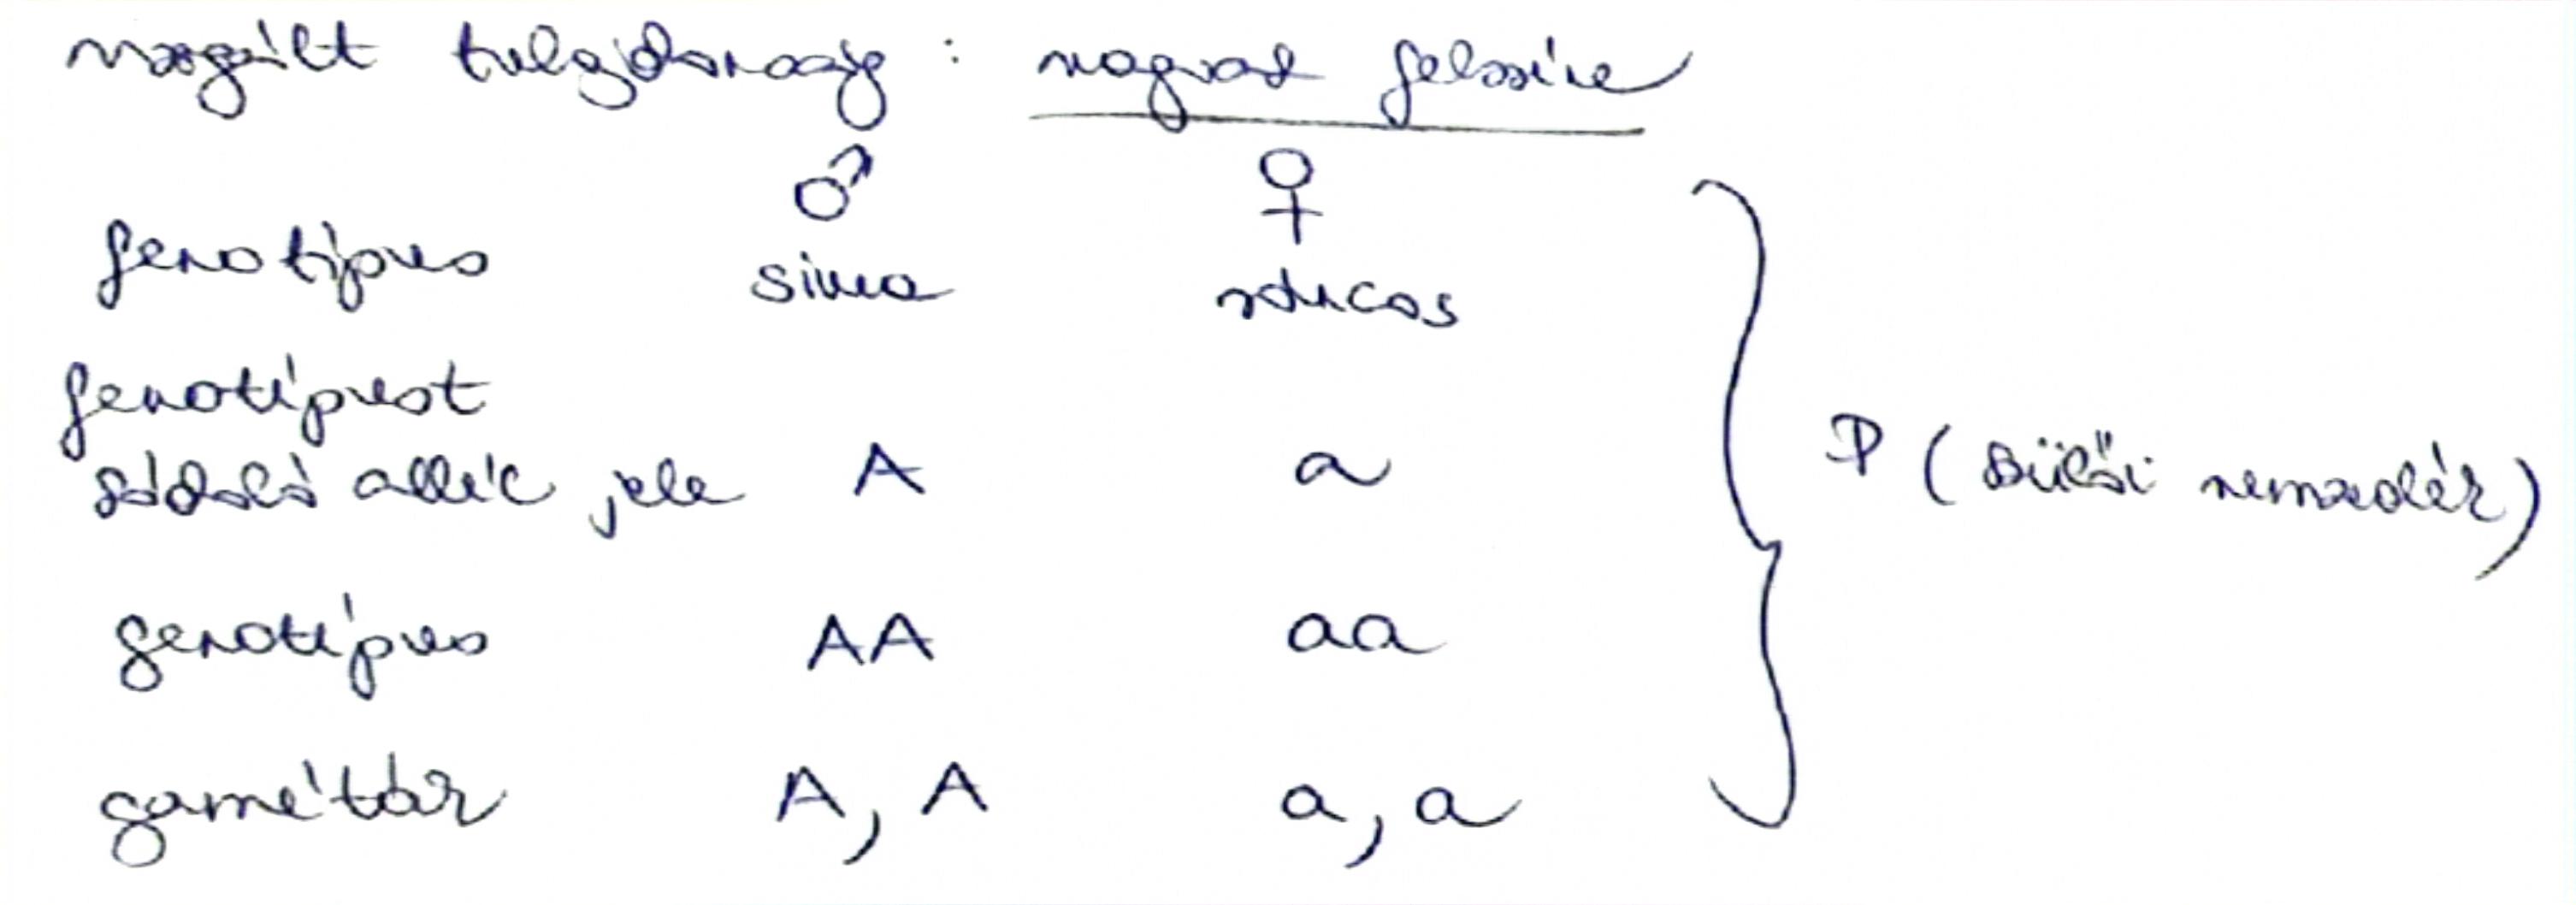 vizsgált tulajdonság: magvak felszíne
♂ ♀
fenotípus sima ráncos
fenotípust
kódoló allél jele A a
P (szülői nemzedék)
genotípus AA aa
gaméták A, A a, a